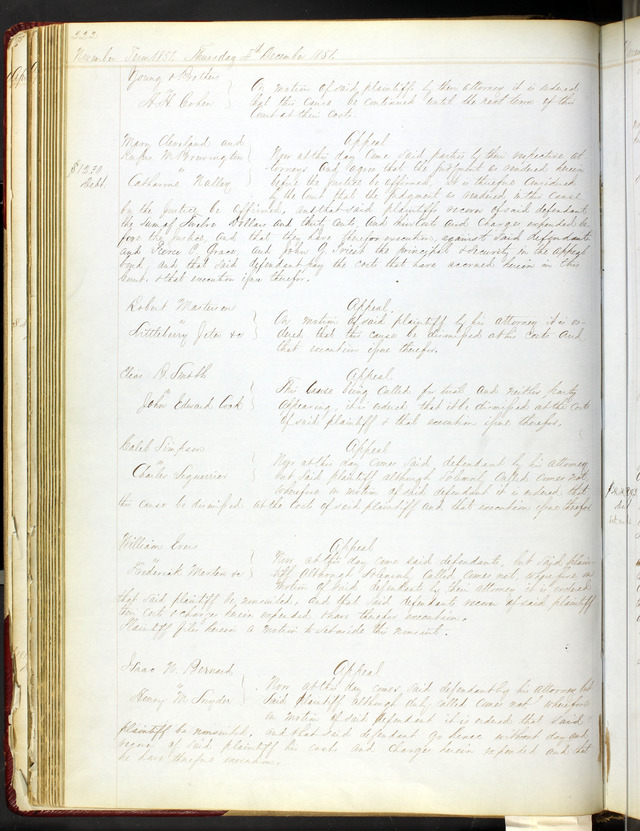 222
November Term 1851. Thursday 4th December 1851.
Young & Brothers
vs
A. H. Cohen
On motion of said plaintiffs by their attorney it is ordered
that this cause be continued until the next term of this
Court at their costs.
Mary Cleveland and
Rufus W. Browington
vs
Catharine Nalley
$12.30
Debt
Appeal
Now at this day come said parties by their respective at
torneys and agree that the judgment as rendered herein
before the justice be affirmed. It is therefore considered
by the Court that the judgment as rendered in this cause
by the justice be affirmed, and that said plaintiffs recover of said defendant
the sum of Twelve Dollars and thirty cents, and their costs and charges expended be
fore the justice, and that they have therefor execution, against said defendant
and Pierce C. Grace, and John O. the principal & security in the appeal
bond, and that said defendant pay the costs that have accrued herein in this
Court. & that execution issue therefor.
Robert Masterson
vs
Littleberry Jeter &c
Appeal.
On motion of said plaintiff by his attorney it is or-
dered that this cause be dismissed at his costs and
that execution issue therefor.
Chas B. Smith
John Edward Cook
Appeal
This cause being called for trial and neither party
appearing, it is ordered that it be dismissed at the costs
of said plaintiff & that execution issue therefor.
Caleb Simpson
vs
Charles
Appeal
Now at this day comes said defendant by his attorney
but said plaintiff although solemnly called comes not
wherefore on motion of said defendant it is ordered that
this cause be dismissed at the costs of said plaintiff and that execution issue therefor
William
vs
Frederick &c
Appeal
Now at this day come said defendants, but said plain-
tiff although solemnly called, comes not, wherefore on
motion of said defendants by their attorney it is ordered
that said plaintiff be nonsuited, and that said defendants recover of said plaintiff
their costs & charges herein expended & have therefor execution.
Plaintiff files herein a motion to set aside this nonsuit.
Isaac W. Bernard
vs
Henry M. Snyder
Appeal
Now at this day comes said defendant by his attorney but
said plaintiff although duly called comes not wherefore
on motion of said defendant it is ordered that said
plaintiff be nonsuited. and that said defendant go hence without day and
recover of said plaintiff his costs and charges herein expended and that
he have therefor execution.